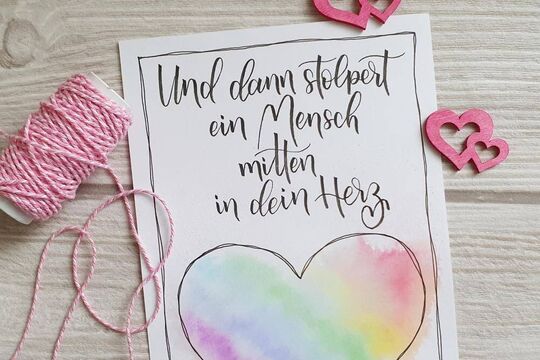 Und dann stolpert
ein Mensch
mitten
in dein Herz